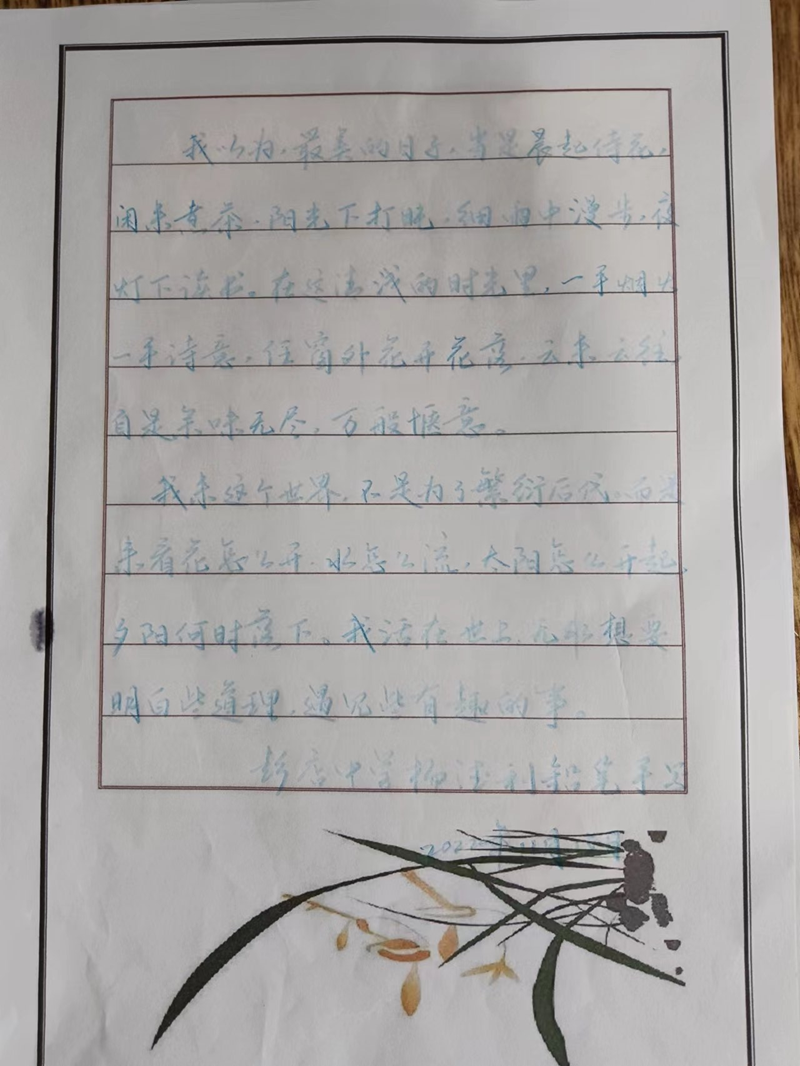 我以为，最美的日子，当是晨起侍花，
闲来煮茶，阳光下打盹，细雨中漫步，夜
灯下读书。在这清浅的时光里，一手烟火
一手诗意，任窗外花开花落，云来云往，
自是余味无尽，万般惬意。
我来这个世界，不是为了繁衍后代。而是
来看花怎么开，水怎么流，太阳怎么升起，
夕阳何时落下。我活在世上，无非想要
明白些道理，遇见些有趣的事。
彭店中学杨法利铅笔手写
年11月 日